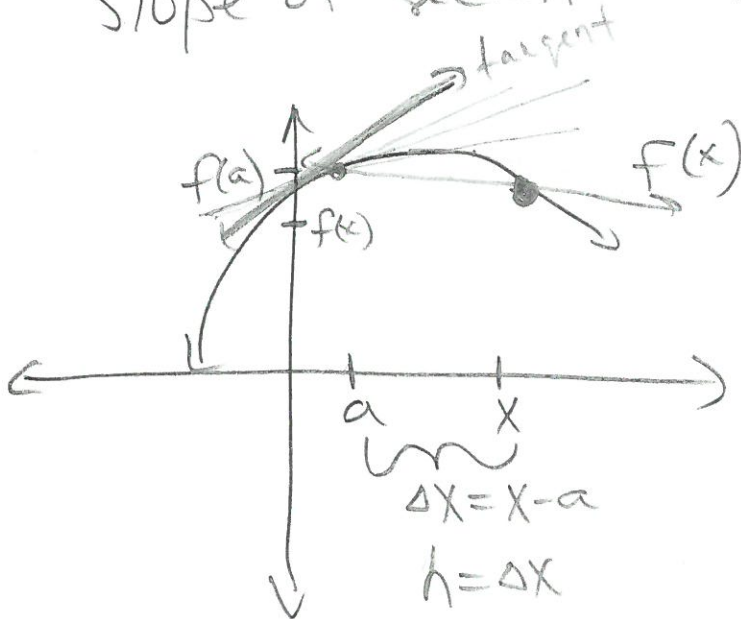 slope of
tangent
f(a)
f(x)
f(x)
a
x
Δx = x - a
h = Δx